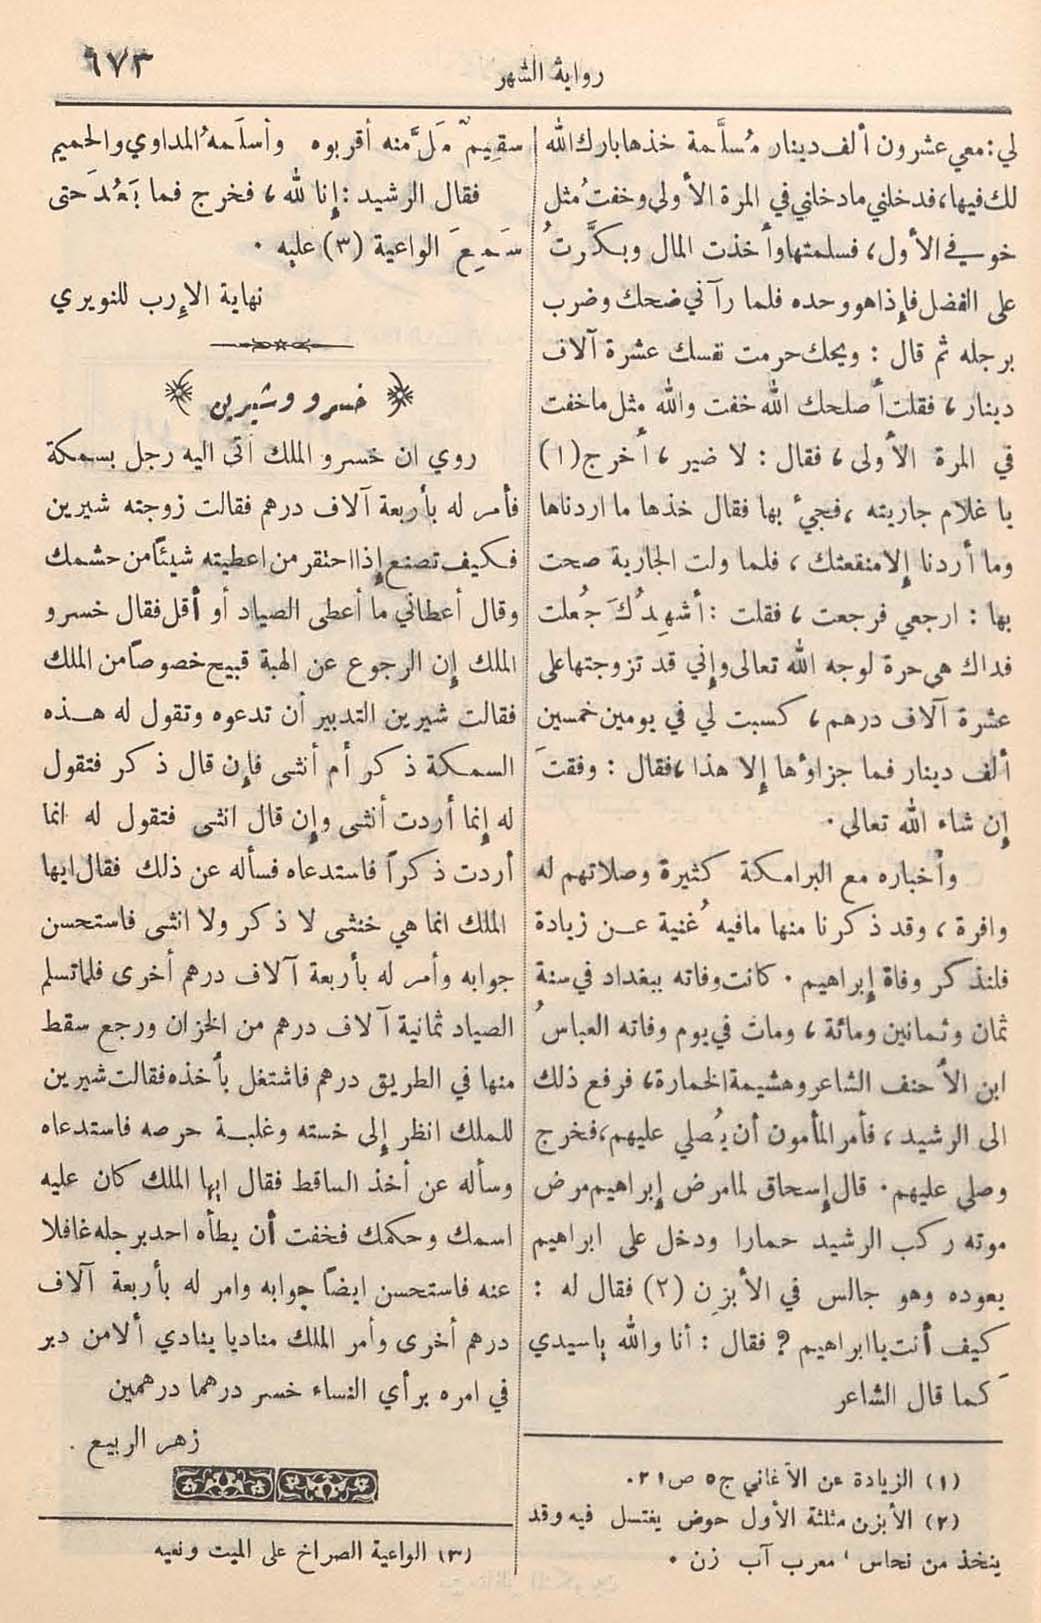 رواية الشهر
٦٧٣
لي: معي عشرون ألف دينار مُسلَّمة خذها بارك الله
لك فيها، فدخلني ما دخلني في المرة الأولى وخفتُ مثل
خوفي في الأول، فسلمتها وأخذت المال وبكَّرتُ
على الفضل فإذا هو وحده فلما رآني ضحك وضرب
برجله ثم قال: ويحك حرمت نفسك عشرة آلاف
دينار، فقلت أصلحك الله خفت والله مثل ما خفت
في المرة الأولى، فقال: لا ضير، أخرج (١)
يا غلام جاريته، فجيء بها فقال خذها ما اردناها
وما أردنا إلا منفعتك، فلما ولت الجارية صحت
بها: ارجعي فرجعت، فقلت: أشهِدُكَ جُعلت
فداك هي حرة لوجه الله تعالى وإني قد تزوجتها على
عشرة آلاف درهم، كسبت لي في يومين خمسين
ألف دينار فما جزاؤها إلا هذا، فقال: وفقتَ
إن شاء الله تعالى.
وأخباره مع البرامكة كثيرة وصلاتهم له
وافرة، وقد ذكرنا منها مافيه غُنية عن زيادة
فلنذكر وفاة إبراهيم. كانت وفاته ببغداد في سنة
ثمان وثمانين ومائة، ومات في يوم وفاته العباسُ
ابن الأحنف الشاعر وهشيمة الخمارة، فرفع ذلك
الى الرشيد، فأمر المأمون أن يُصلي عليهم، فخرج
وصلى عليهم. قال إسحاق لما مرض إبراهيم مرض
موته ركب الرشيد حمارا ودخل على ابراهيم
يعوده وهو جالس في الأبزِن (٢) فقال له:
كيف أنت يا ابراهيم؟ فقال: أنا والله ياسيدي
كما قال الشاعر
(١) الزيادة عن الأغاني ج٥ ص٢١.
(٢) الأبزن مثلثة الأول حوض يغتسل فيه وقد
يتخذ من نحاس، معرب آب زن.
سقيمٌ مَلَّ منه أقربوه وأسلَمهُ المداوي والحميم
فقال الرشيد: إنا لله، فخرج فما بَعُدَ حتى
سَمِعَ الواعية (٣) عليه.
نهاية الإرب للنويري
خسرو وشيرين
روي ان خسرو الملك أتى اليه رجل بسمكة
فأمر له بأربعة آلاف درهم فقالت زوجته شيرين
فكيف تصنع إذا احتقر من اعطيته شيئاً من حشمك
وقال أعطاني ما أعطى الصياد أو أقل فقال خسرو
الملك إن الرجوع عن الهبة قبيح خصوصاً من الملك
فقالت شيرين التدبير أن تدعوه وتقول له هذه
السمكة ذكر أم أنثى فإن قال ذكر فتقول
له إنما أردت أنثى وإن قال انثى فتقول له انما
أردت ذكراً فاستدعاه فسأله عن ذلك فقال ايها
الملك انما هي خنثى لا ذكر ولا انثى فاستحسن
جوابه وأمر له بأربعة آلاف درهم أخرى فلما تسلم
الصياد ثمانية آلاف درهم من الخزان ورجع سقط
منها في الطريق درهم فاشتغل بأخذه فقالت شيرين
للملك انظر إلى خسته وغلبة حرصه فاستدعاه
وسأله عن أخذ الساقط فقال ايها الملك كان عليه
اسمك وحكمك فخفت أن يطأه احد برجله غافلا
عنه فاستحسن ايضاً جوابه وامر له بأربعة آلاف
درهم أخرى وأمر الملك مناديا ينادي ألا من دبر
في امره برأي النساء خسر درهما درهمين
زهر الربيع.
(٣) الواعية الصراخ على الميت ونعيه